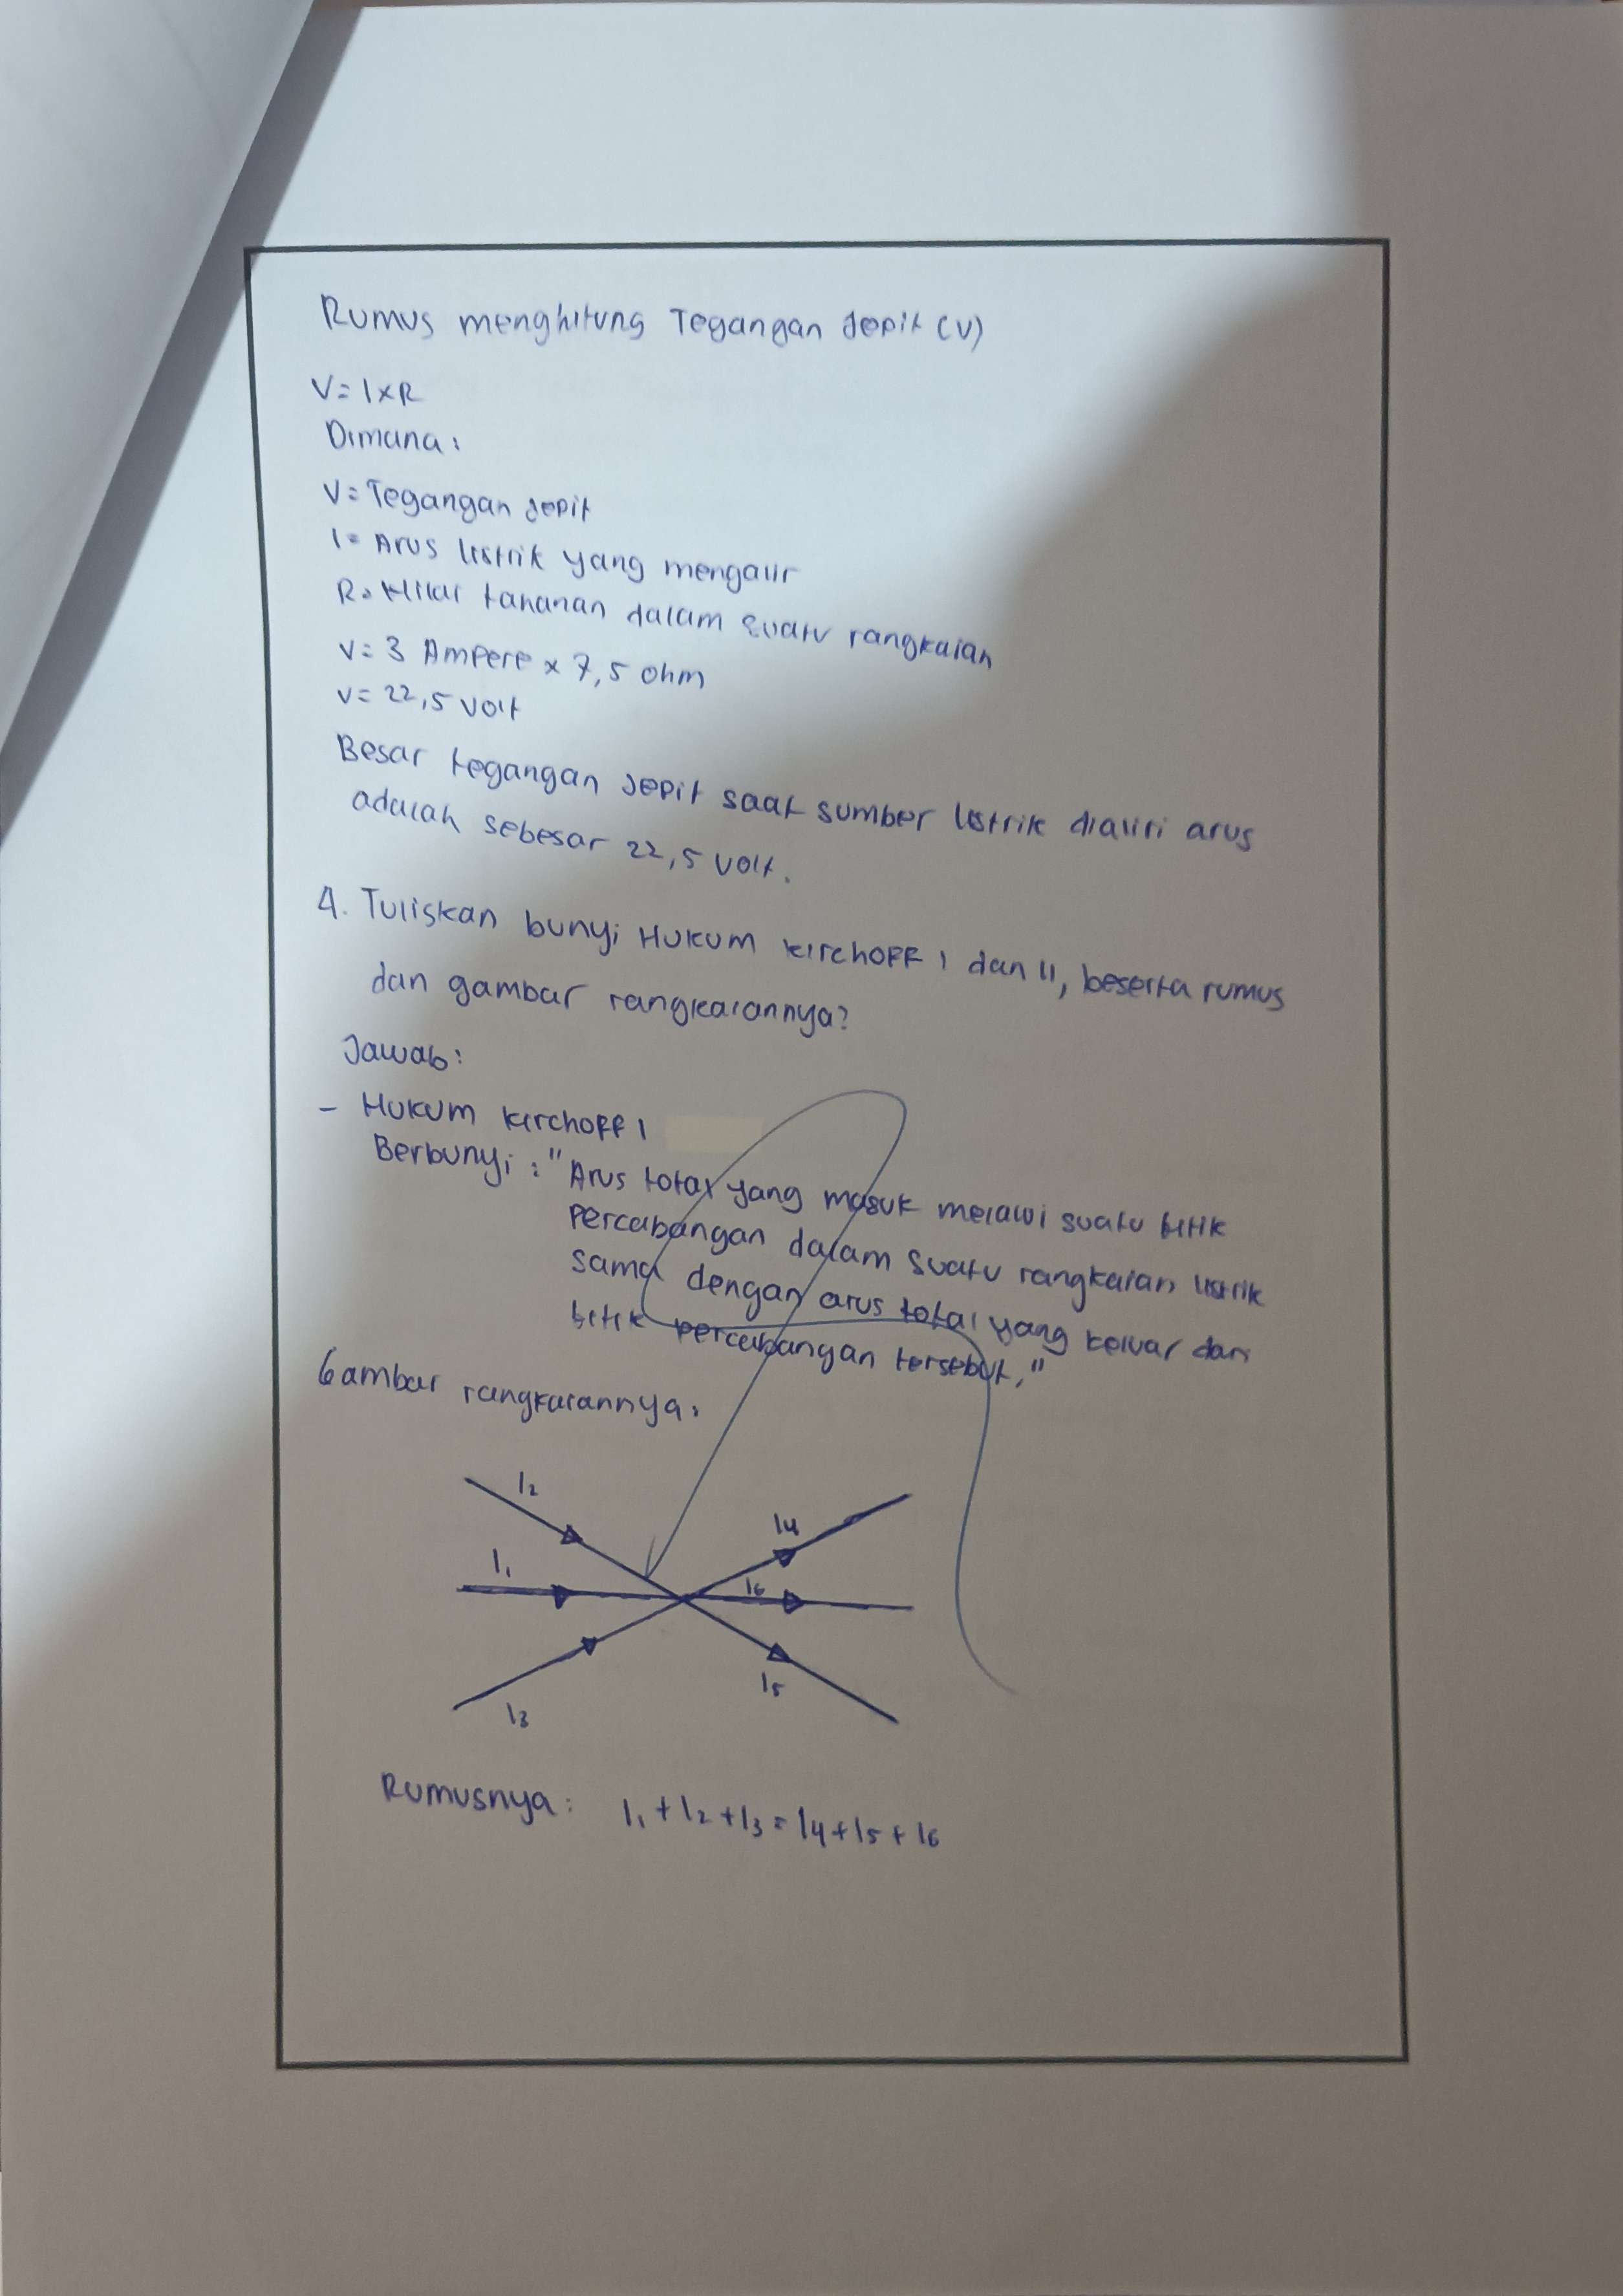 Rumus menghitung Tegangan Jepit (V)
V = I x R
Dimana :
V = Tegangan Jepit
I = Arus listrik yang mengalir
R = Nilai tahanan dalam suatu rangkaian
V = 3 Ampere x 7,5 ohm
V = 22,5 volt
Besar tegangan Jepit saat sumber listrik dialiri arus
adalah sebesar 22,5 volt.
4. Tuliskan bunyi Hukum kirchoff I dan II, beserta rumus
dan gambar rangkaiannya?
Jawab:
- Hukum kirchoff I
Berbunyi : "Arus total yang masuk melalui suatu titik
percabangan dalam suatu rangkaian listrik
sama dengan arus total yang keluar dari
titik percabangan tersebut,"
Gambar rangkaiannya:
I2
I4
I1
I6
I5
I3
Rumusnya : I1 + I2 + I3 = I4 + I5 + I6